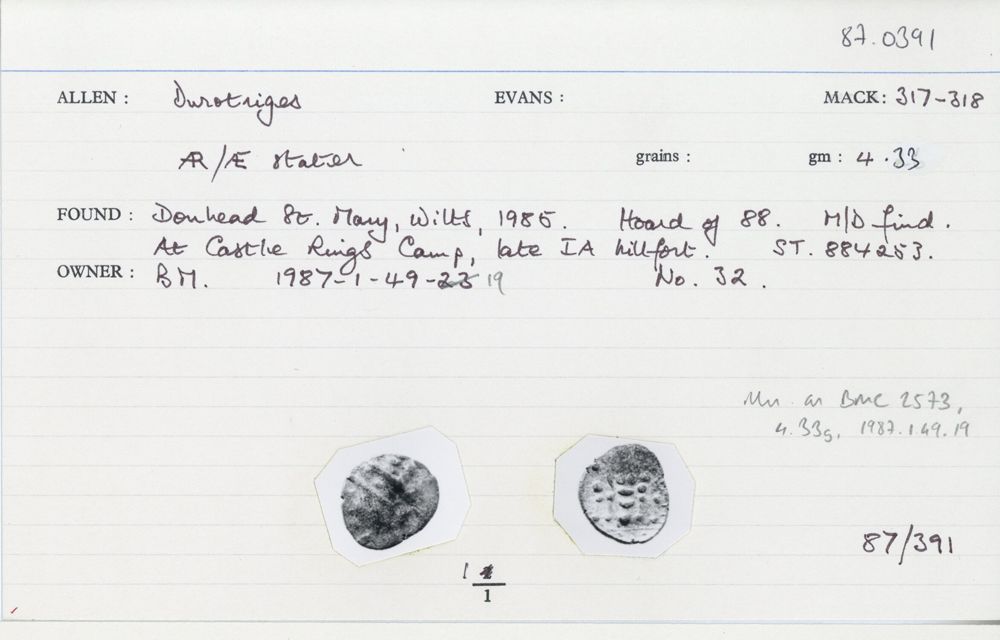 87.0391
ALLEN : Durotriges EVANS : MACK: 317-318
ÆR/Æ stater grains : gm : 4.33
FOUND : Donhead St. Mary, Wilts, 1985. Hoard of 88. M/D find.
At Castle Rings Camp, late IA hillfort. ST. 884253.
OWNER : BM. 1987-1-49-23 19 No. 32.
as BMC 2573,
4.33g, 1987.1.49.19
87/391
1
1